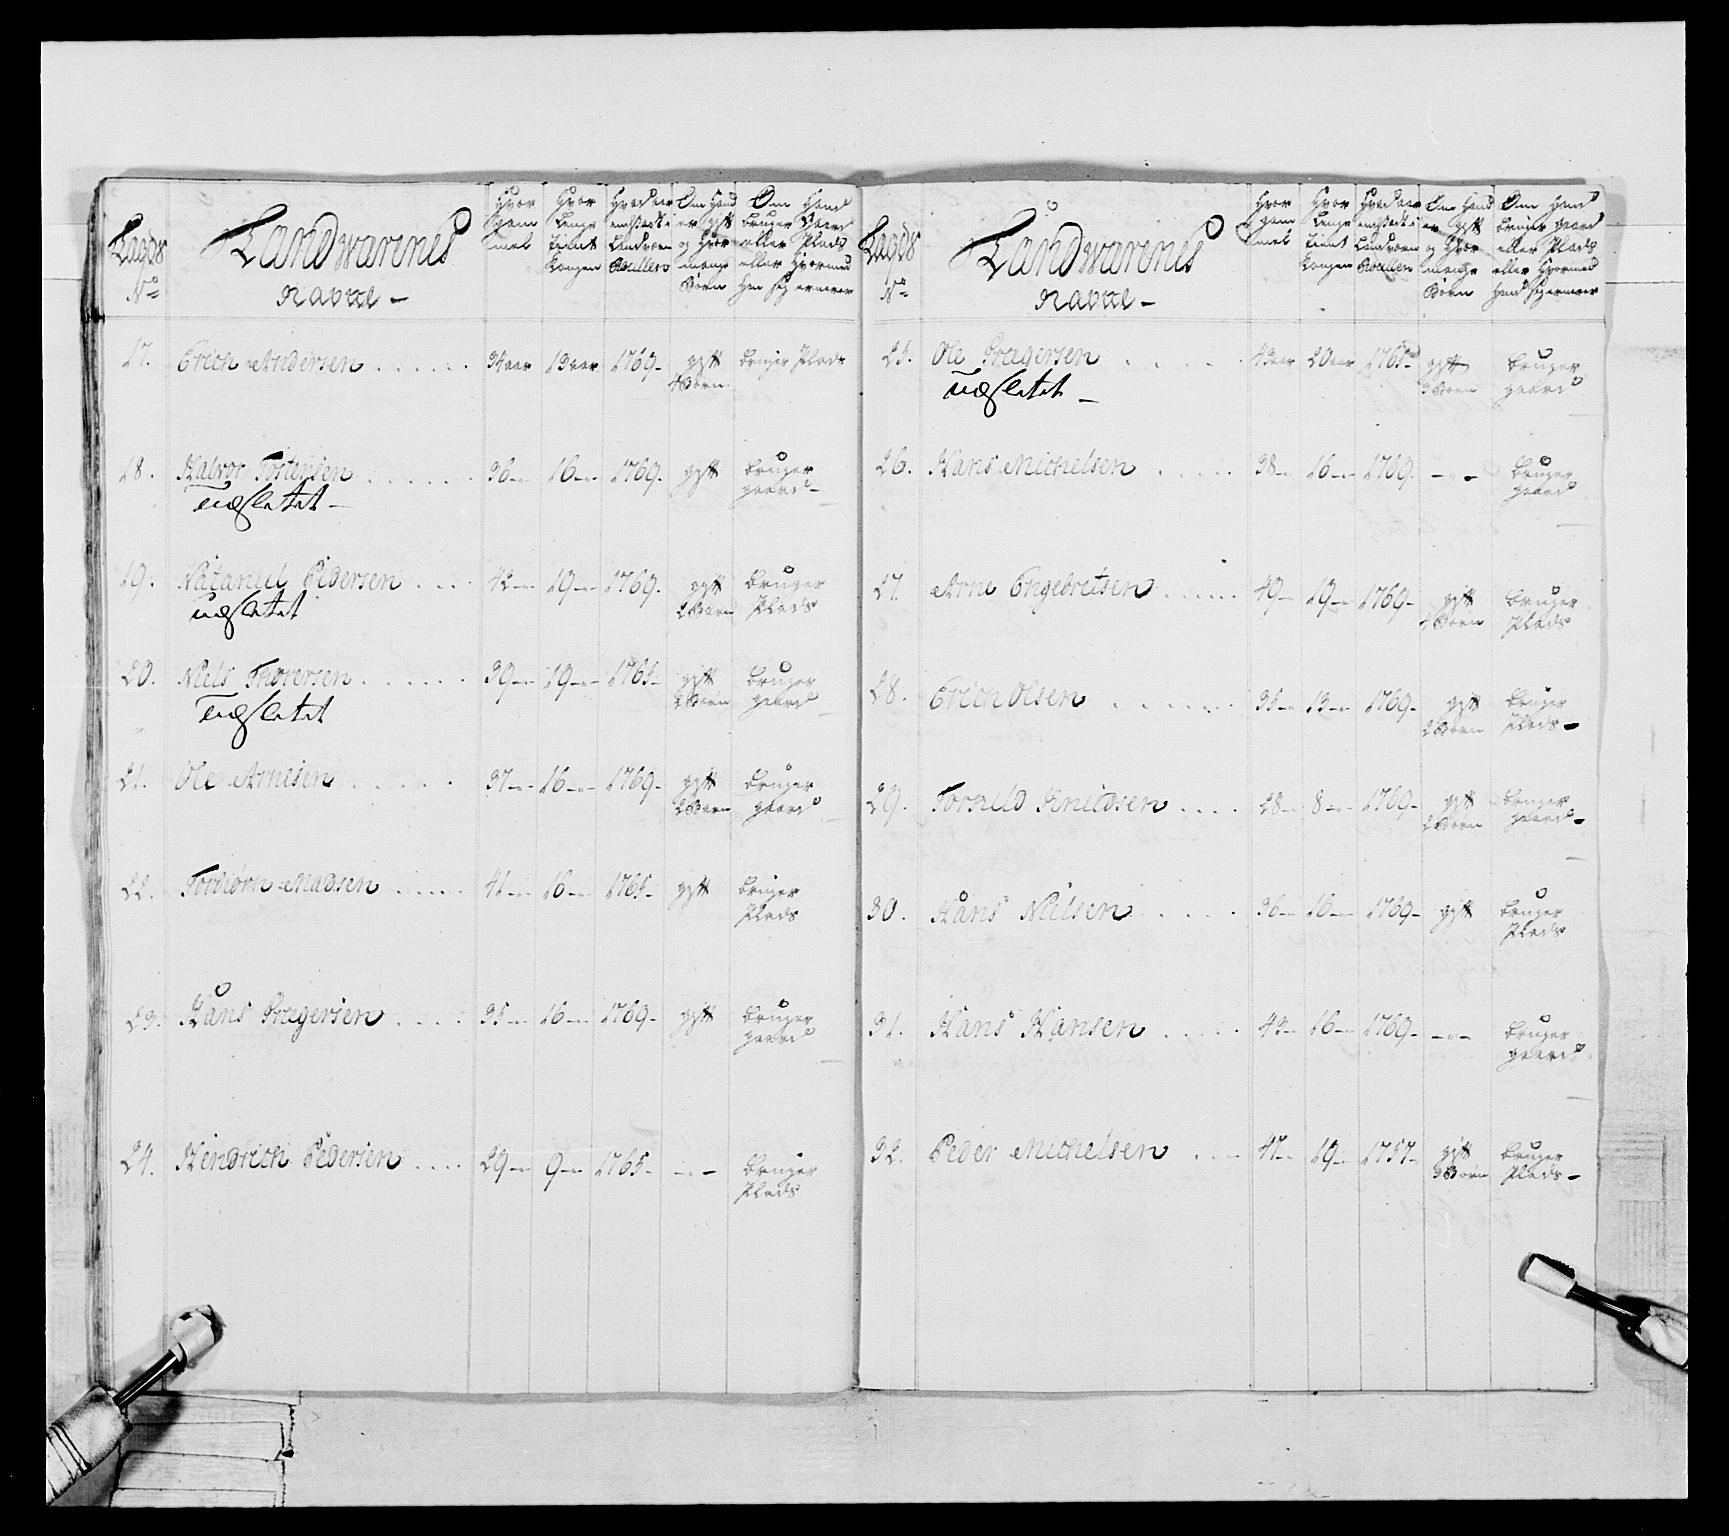 Lægds
No
Landwærnes
Navne -
Hvor
gam
mel
Hvor
Længe
tient
Kongen
Hvad aar
indsadt i
Landværn
Rullen
Om Hand
er gift
og Hvor
mange
Børn
Om Hand
bruger Gaard
eller Plads
eller Hvormed
Han sig ernærer
17. Erich Andersen . . . . . 34 aar 13 aar 1769 - gift bruger Plads
4 Børn
18. Halvor Tostensen . . . . . . 36 - 16 - 1769. gift bruger
udsletet - gaard -
19. Nataniel Pedersen . . . . 42 - 19 - 1769. gift bruger
udsletet 2 Børn Plads
20. Niels Thorersen . . . . . . 39 - 19 - 1765 - gift bruger
udsletet 2 Børn gaard
21. Ole Arnesen . . . . . 37 - 16 - 1769 - gift bruger
2 Børn gaard
22. Torbiørn Madsen . . . . . 41 - 16 - 1765 - gift bruger
Plads
23. Hans Gregersen . . . . 35 - 16 - 1769 - gift bruger
gaard
24. Hendrich Pedersen . . . . 29 - 9 - 1765 - - " - bruger
Plads
Lægds
No
Landwærnes
Navne -
Hvor
gam
mel
Hvor
Længe
tient
Kongen
Hvad aar
indsadt i
Landværn
Rullen
Om Hand
er gift
og Hvor
mange
Børn
Om Hand
bruger gaard
eller Plads
eller Hvormed
Hand sig ernærer
25. Ole Gregersen . . . . . 43 aar 20 aar 1765 - gift bruger
udsletet - 3 Børn gaard
26. Hans Michelsen . . . . . 38 - 16 - 1769. - " - bruger
gaard
27. Arne Engebretsen . . . . . 49 - 19 - 1769 - gift bruger
4 Børn Plads
28. Erich Olsen . . . . . . 35 - 13 - 1769 - gift bruger
2 Børn Plads -
29. Torkild Knudsen . . . . 28 - 8 - 1769 - gift bruger
2 Børn gaard -
30. Hans Nielsen . . . . . 36 - 16 - 1769 - gift bruger
Plads
31. Hans Hansen . . . . . 43 - 16 - 1769 - - " - bruger
gaard
32. Peder Michelsen . . . 47 - 19 - 1757 - gift bruger
3 Børn Plads -